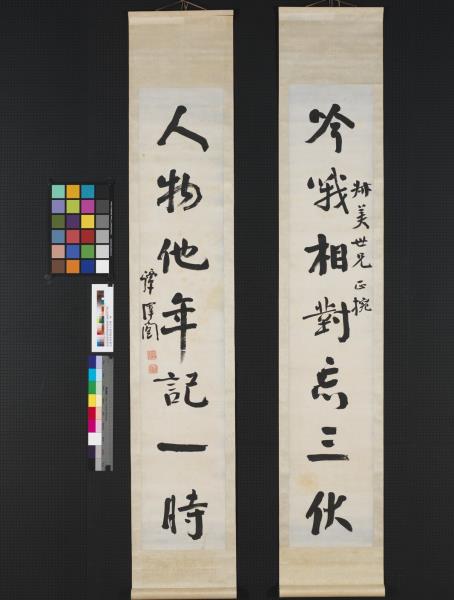 吟哦相對忘三伏
美世兄正
人物他年記一時
譚澤闓